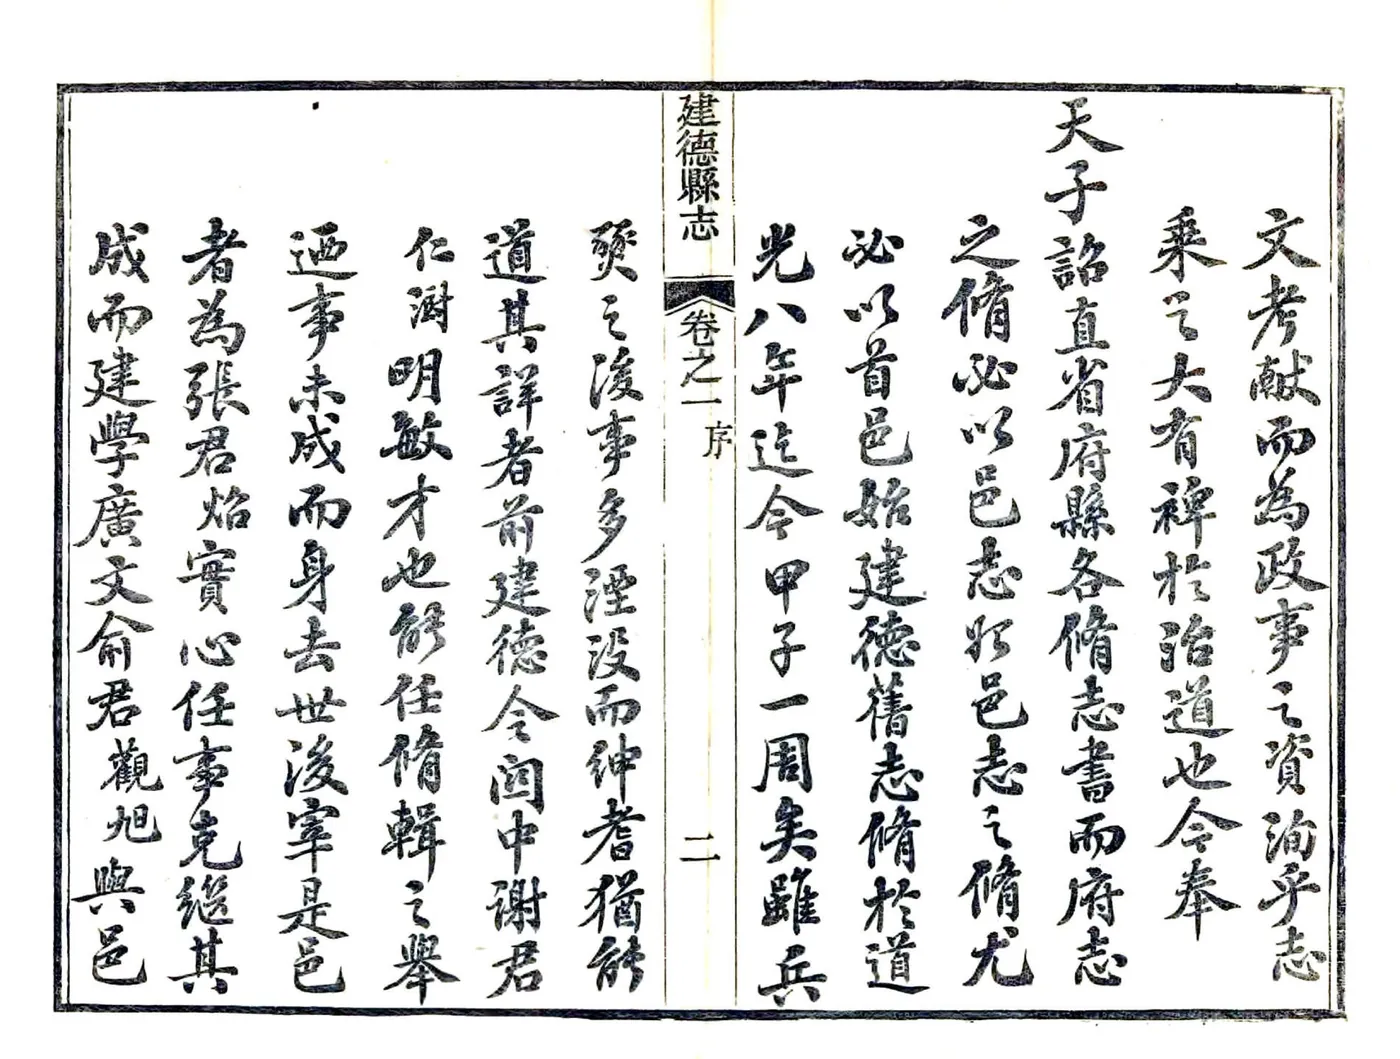 文考献而為政事之資洵乎志
乘之大有裨於治道也今奉
天子詔直省府縣各脩志書而府志
之脩必以邑志始邑志之脩尤
必以首邑始建德舊志脩於道
光八年迄今甲子一周矣雖兵
建德縣志
卷之一
序
二
燹之後事多湮没而紳耆猶能
道其詳者前建德令閎中谢君
仁澍明敏才也能任脩輯之舉
迺事未成而身去世後宰是邑
者為張君焰實心任事克继其
成而建學廣文俞君觀旭與邑